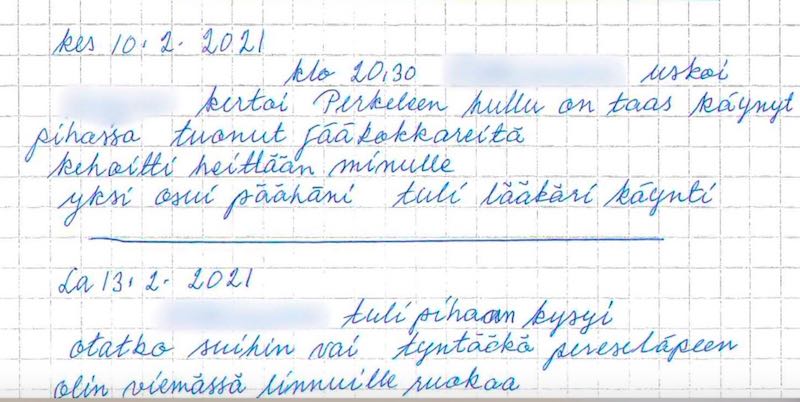 kes 10.2. 2021
klo 20,30 uskoi
kertoi Perkeleen hullu on taas käynyt
pihassa tuonut jääkokkareitä
kehoitti heittään minulle
yksi osui päähäni tuli lääkäri käynti
La 13.2. 2021
tuli pihaan kysyi
otatko suihin vai tyntääkö perseeläpeen
olin viemässä linnuille ruokaa